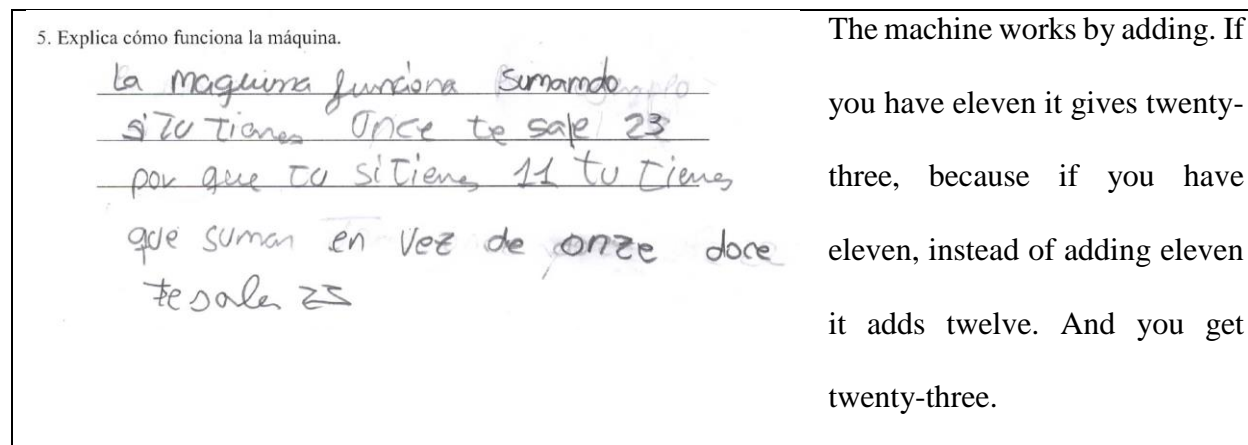 5. Explica cómo funciona la máquina.
la maquina funciona sumamdo
si tu tienes Once te sale 23
por que tu si tienes 11 tu tienes
que suman en vez de onze doce
te sale 23
The machine works by adding. If
you have eleven it gives twenty-
three, because if you have
eleven, instead of adding eleven
it adds twelve. And you get
twenty-three.